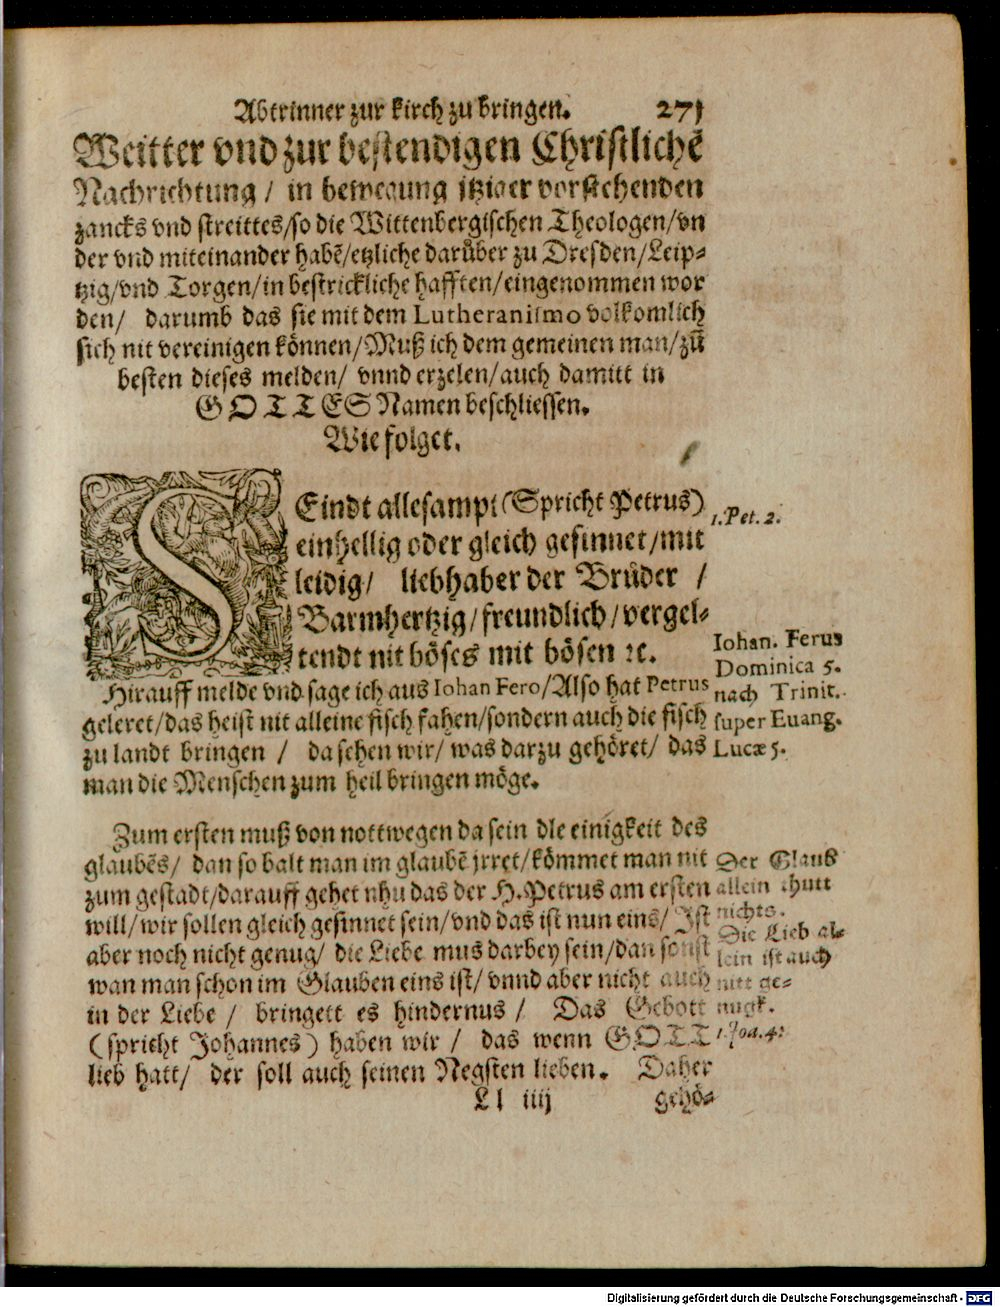 Abtrinner zur kirch zu bringen. 271
Weitter vnd zur bestendigen Christlichẽ
Nachrichtung / in bewegung jtziger vorstehenden
zancks vnd streittes/so die Wittenbergischen Theologen/vn
der vnd miteinander habẽ/etzliche darůber zu Dresden/Leip-
tzig/vnd Torgen/in bestrickliche hafften/eingenommen wor
den/ darumb das sie mit dem Lutheranismo volkomlich
sich nit vereinigen können/Muß ich dem gemeinen man/zũ
besten dieses melden/ vnnd erzelen/auch damitt in
GOTTES Namen beschliessen.
Wie folget.
SEindt allesampt (Spricht Petrus)
einhellig oder gleich gesinnet/mit
leidig/ liebhaber der Brůder /
Barmhertzig/freundlich/vergel-
tendt nit böses mit bösen ꝛc.
1. Pet. 2.
Hirauff melde vnd sage ich aus Iohan Fero/Also hat Petrus
geleret/das heist nit alleine fisch fahen/sondern auch die fisch
zu landt bringen / da sehen wir/ was darzu gehöret/ das
man die Menschen zum heil bringen möge.
Iohan. Ferus
Dominica 5.
nach Trinit.
super Euang.
Lucæ 5.
Zum ersten muß von nottwegen da sein dle einigkeit des
glaubẽs/ dan so balt man im glaubẽ jrret/kömmet man nit
zum gestadt/darauff gehet nhu das der H. Petrus am ersten
will/wir sollen gleich gesinnet sein/vnd das ist nun eins/ Ist
aber noch nicht genug/ die Liebe mus darbey sein/dan sonst
wan man schon im Glauben eins ist/ vnnd aber nicht auch
in der Liebe / bringett es hindernus / Das Gebott
(spricht Johannes) haben wir / das wenn GOTT
lieb hatt/ der soll auch seinen Negsten lieben. Daher
Der Glaub
allein thutt
nichts.
Die Lieb al-
lein ist auch
nitt ge-
nugk.
1. Joa. 4.
Ll iiij gehö-
Digitalisierung gefördert durch die Deutsche Forschungsgemeinschaft - DFG